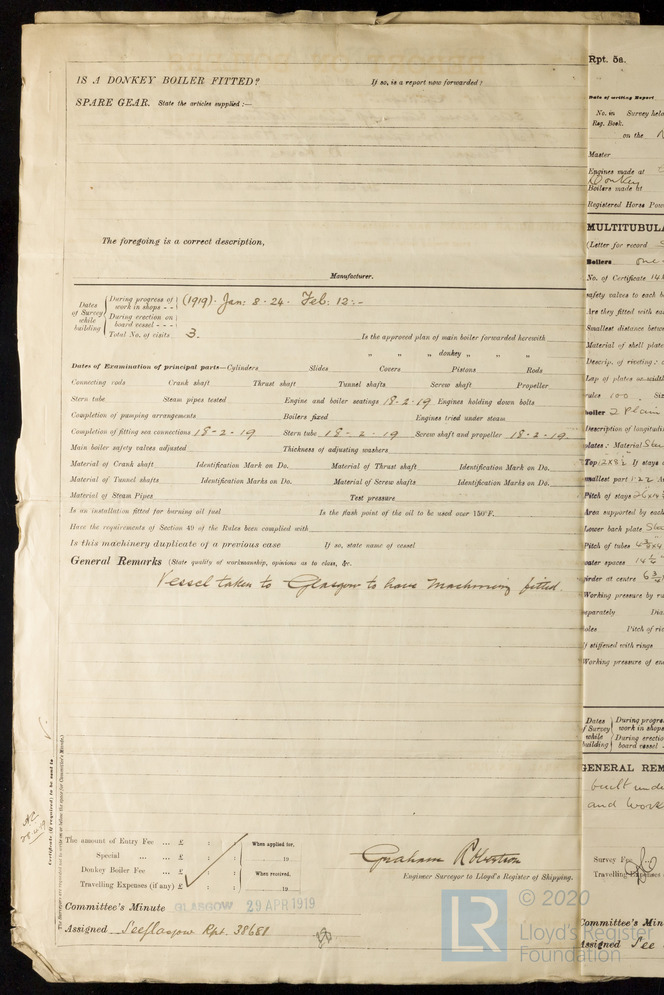 IS A DONKEY BOILER FITTED? If so, is a report now forwarded?
SPARE GEAR. State the articles supplied:—
The foregoing is a correct description,
Manufacturer.
Dates of Survey while building
During progress of work in shops - - (1919) Jan: 8. 24. Feb: 12:-
During erection on board vessel - - -
Total No. of visits 3. Is the approved plan of main boiler forwarded herewith
" " " donkey " " "
Dates of Examination of principal parts—Cylinders Slides Covers Pistons Rods
Connecting rods Crank shaft Thrust shaft Tunnel shafts Screw shaft Propeller
Stern tube Steam pipes tested Engine and boiler seatings 18-2-19 Engines holding down bolts
Completion of pumping arrangements Boilers fixed Engines tried under steam
Completion of fitting sea connections 18-2-19 Stern tube 18-2-19 Screw shaft and propeller 18-2-19
Main boiler safety valves adjusted Thickness of adjusting washers
Material of Crank shaft Identification Mark on Do. Material of Thrust shaft Identification Mark on Do.
Material of Tunnel shafts Identification Marks on Do. Material of Screw shafts Identification Marks on Do.
Material of Steam Pipes Test pressure
Is an installation fitted for burning oil fuel Is the flash point of the oil to be used over 150°F.
Have the requirements of Section 49 of the Rules been complied with
Is this machinery duplicate of a previous case If so, state name of vessel
General Remarks (State quality of workmanship, opinions as to class, &c.
Vessel taken to Glasgow to have Machinery fitted.
Certificate (if required) to be sent to
The amount of Entry Fee ... £ : : When applied for,
Special ... ... £ : : 19
Donkey Boiler Fee ... £ : : When received,
Travelling Expenses (if any) £ : : 19
Graham Robertson
Engineer Surveyor to Lloyd's Register of Shipping.
Committee's Minute GLASGOW 29 APR 1919
Assigned See Glasgow Rpt. 38681
Rpt. 5a.
Date of writing Report
No. in Survey held
Reg. Book.
on the
Master
Engines made at
Donkey
Boilers made at
Registered Horse Pow
MULTITUBULA
(Letter for record
Boilers one
No. of Certificate 14
safety valves to each b
Are they fitted with ea
Smallest distance betw
Material of shell plate
Descrip. of riveting:
Lap of plates or width
rules 100. Siz
boiler 2 Plain
Description of longitudi
plates: Material Stee
Top If stays
smallest part 1.22
Pitch of stays
Area supported by each
Lower back plate Stee
Pitch of tubes
water spaces 14½"
girder at centre
Working pressure by ru
separately Dia
holes Pitch of ri
If stiffened with rings
Working pressure of en
Dates of Survey while building
During progre
work in shops
During erectio
board vessel
GENERAL REM
built unde
and work
Survey Fee
Travelling Expenses
Committee's Min
Assigned See
© 2020
LR
Lloyd's Register
Foundation